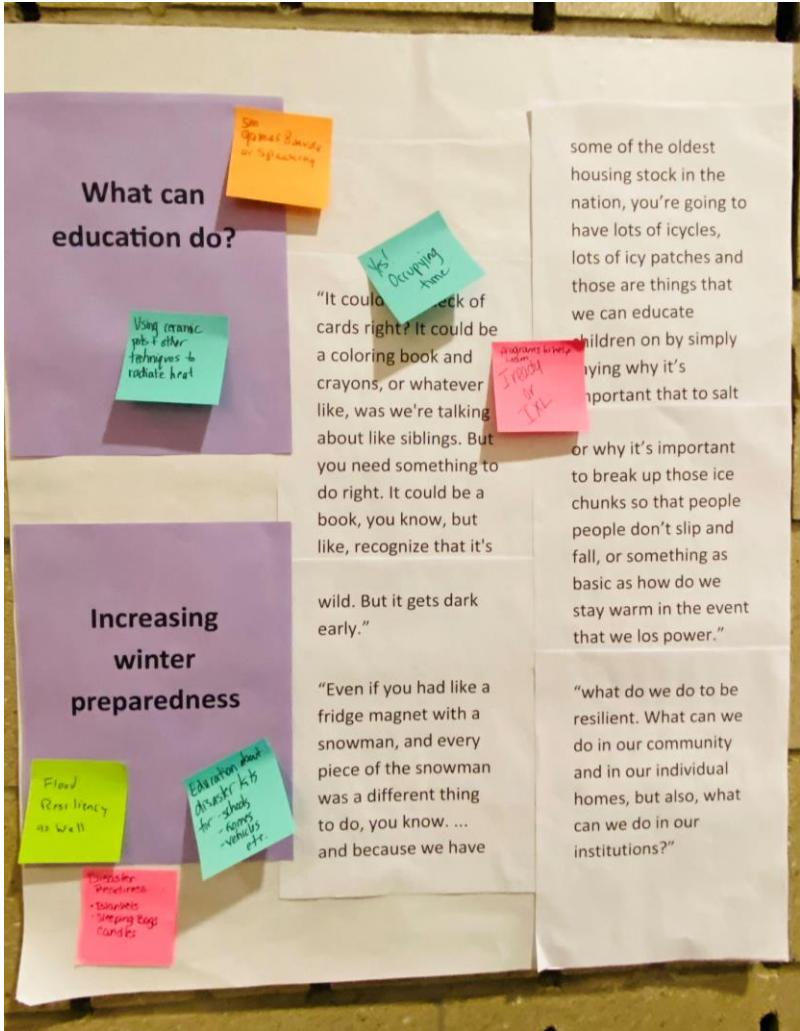 What can
education do?
games Boards
or Speaking
Using ceramic
pots + other
techniques to
radiate heat
Increasing
winter
preparedness
Flood
Resiliency
as well
Education about
disaster kits
for - schools
- homes
- vehicles
etc.
Disaster
Readiness
• Blankets
• Sleeping Bags
Candles
Yes!
Occupying
time
"It could eck of
cards right? It could be
a coloring book and
crayons, or whatever
like, was we're talking
about like siblings. But
you need something to
do right. It could be a
book, you know, but
like, recognize that it's
wild. But it gets dark
early."
"Even if you had like a
fridge magnet with a
snowman, and every
piece of the snowman
was a different thing
to do, you know. ...
and because we have
Programs to help
learn
Iready
or
IXL
some of the oldest
housing stock in the
nation, you're going to
have lots of icicles,
lots of icy patches and
those are things that
we can educate
children on by simply
aying why it's
mportant that to salt
or why it's important
to break up those ice
chunks so that people
people don't slip and
fall, or something as
basic as how do we
stay warm in the event
that we los power."
"what do we do to be
resilient. What can we
do in our community
and in our individual
homes, but also, what
can we do in our
institutions?"